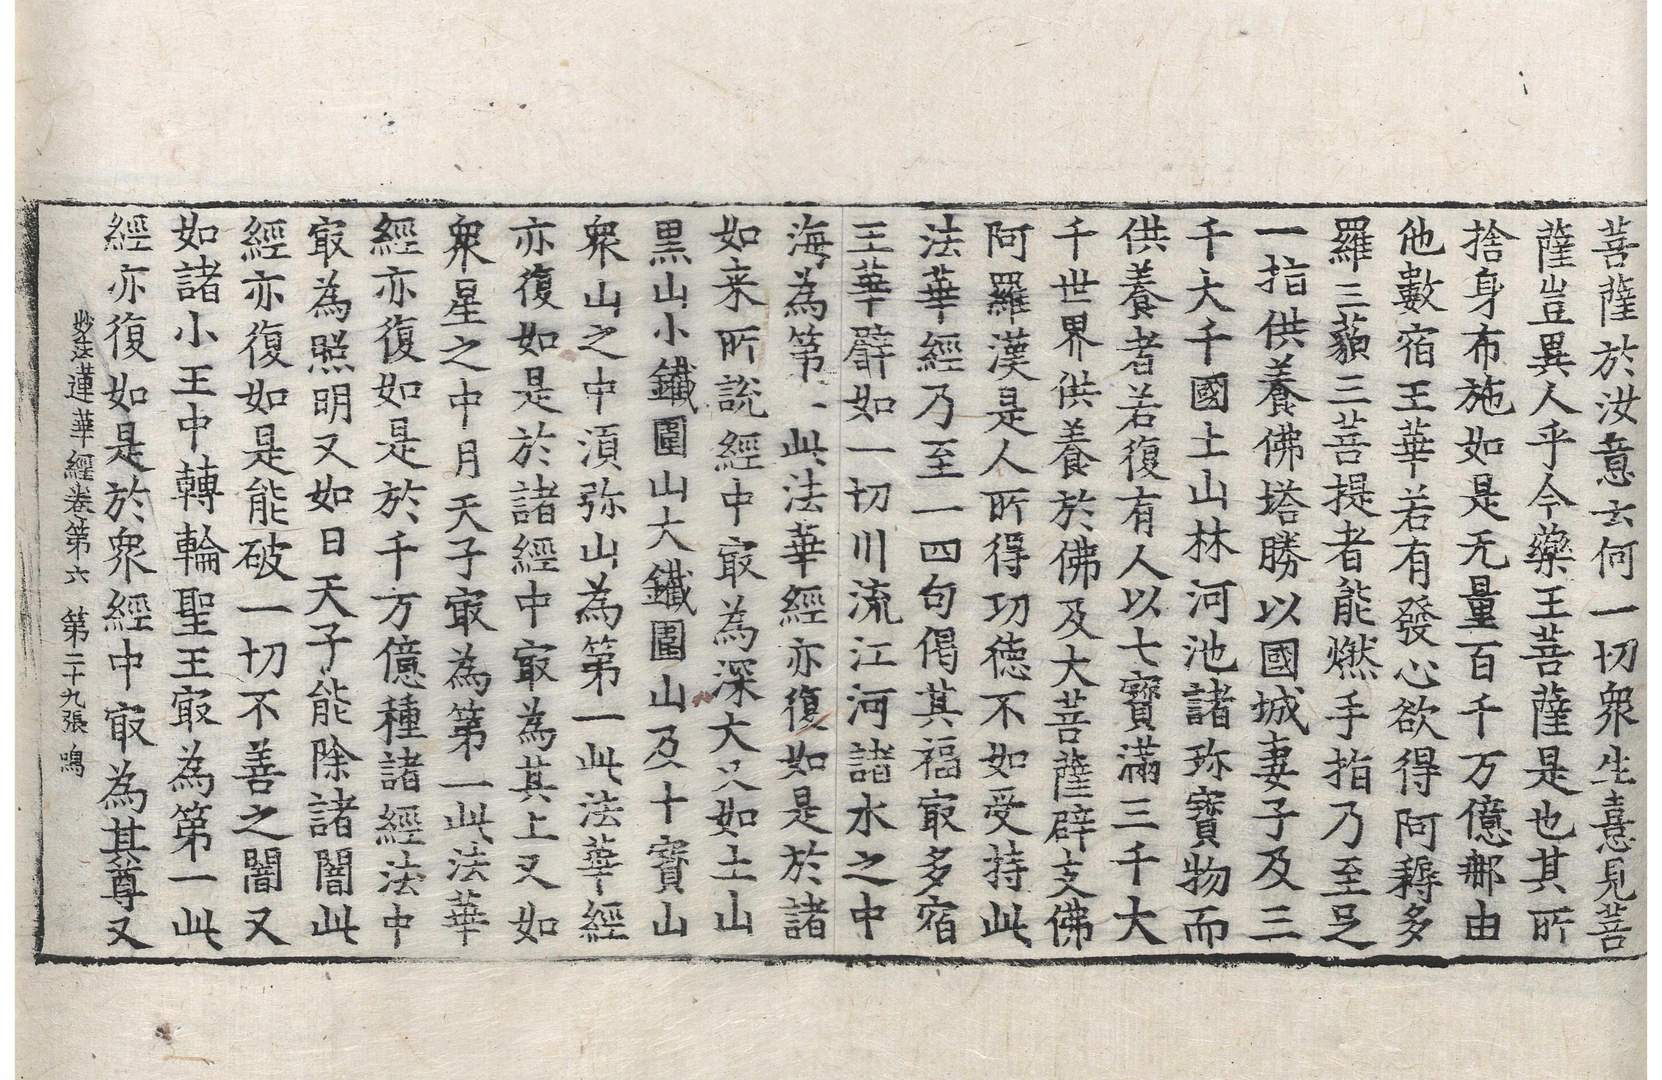 菩薩於汝意云何一切衆生憙見菩
薩豈異人乎今藥王菩薩是也其所
捨身布施如是无量百千万億那由
他數宿王華若有發心欲得阿耨多
羅三藐三菩提者能燃手指乃至足
一指供養佛塔勝以國城妻子及三
千大千國土山林河池諸珎寶物而
供養者若復有人以七寶滿三千大
千世界供養於佛及大菩薩辟支佛
阿羅漢是人所得功德不如受持此
法華經乃至一四句偈其福㝡多宿
王華辟如一切川流江河諸水之中
海為第一此法華經亦復如是於諸
如来所說經中㝡為深大又如土山
黒山小鐵圍山大鐵圍山及十寶山
衆山之中湏弥山為第一此法華經
亦復如是於諸經中㝡為其上又如
衆星之中月天子㝡為第一此法華
經亦復如是於千万億種諸經法中
㝡為照明又如日天子能除諸闇此
經亦復如是能破一切不善之闇又
如諸小王中轉輪聖王㝡為第一此
經亦復如是於衆經中㝡為其尊又
妙法蓮華經卷第六　第二十九張　鳴